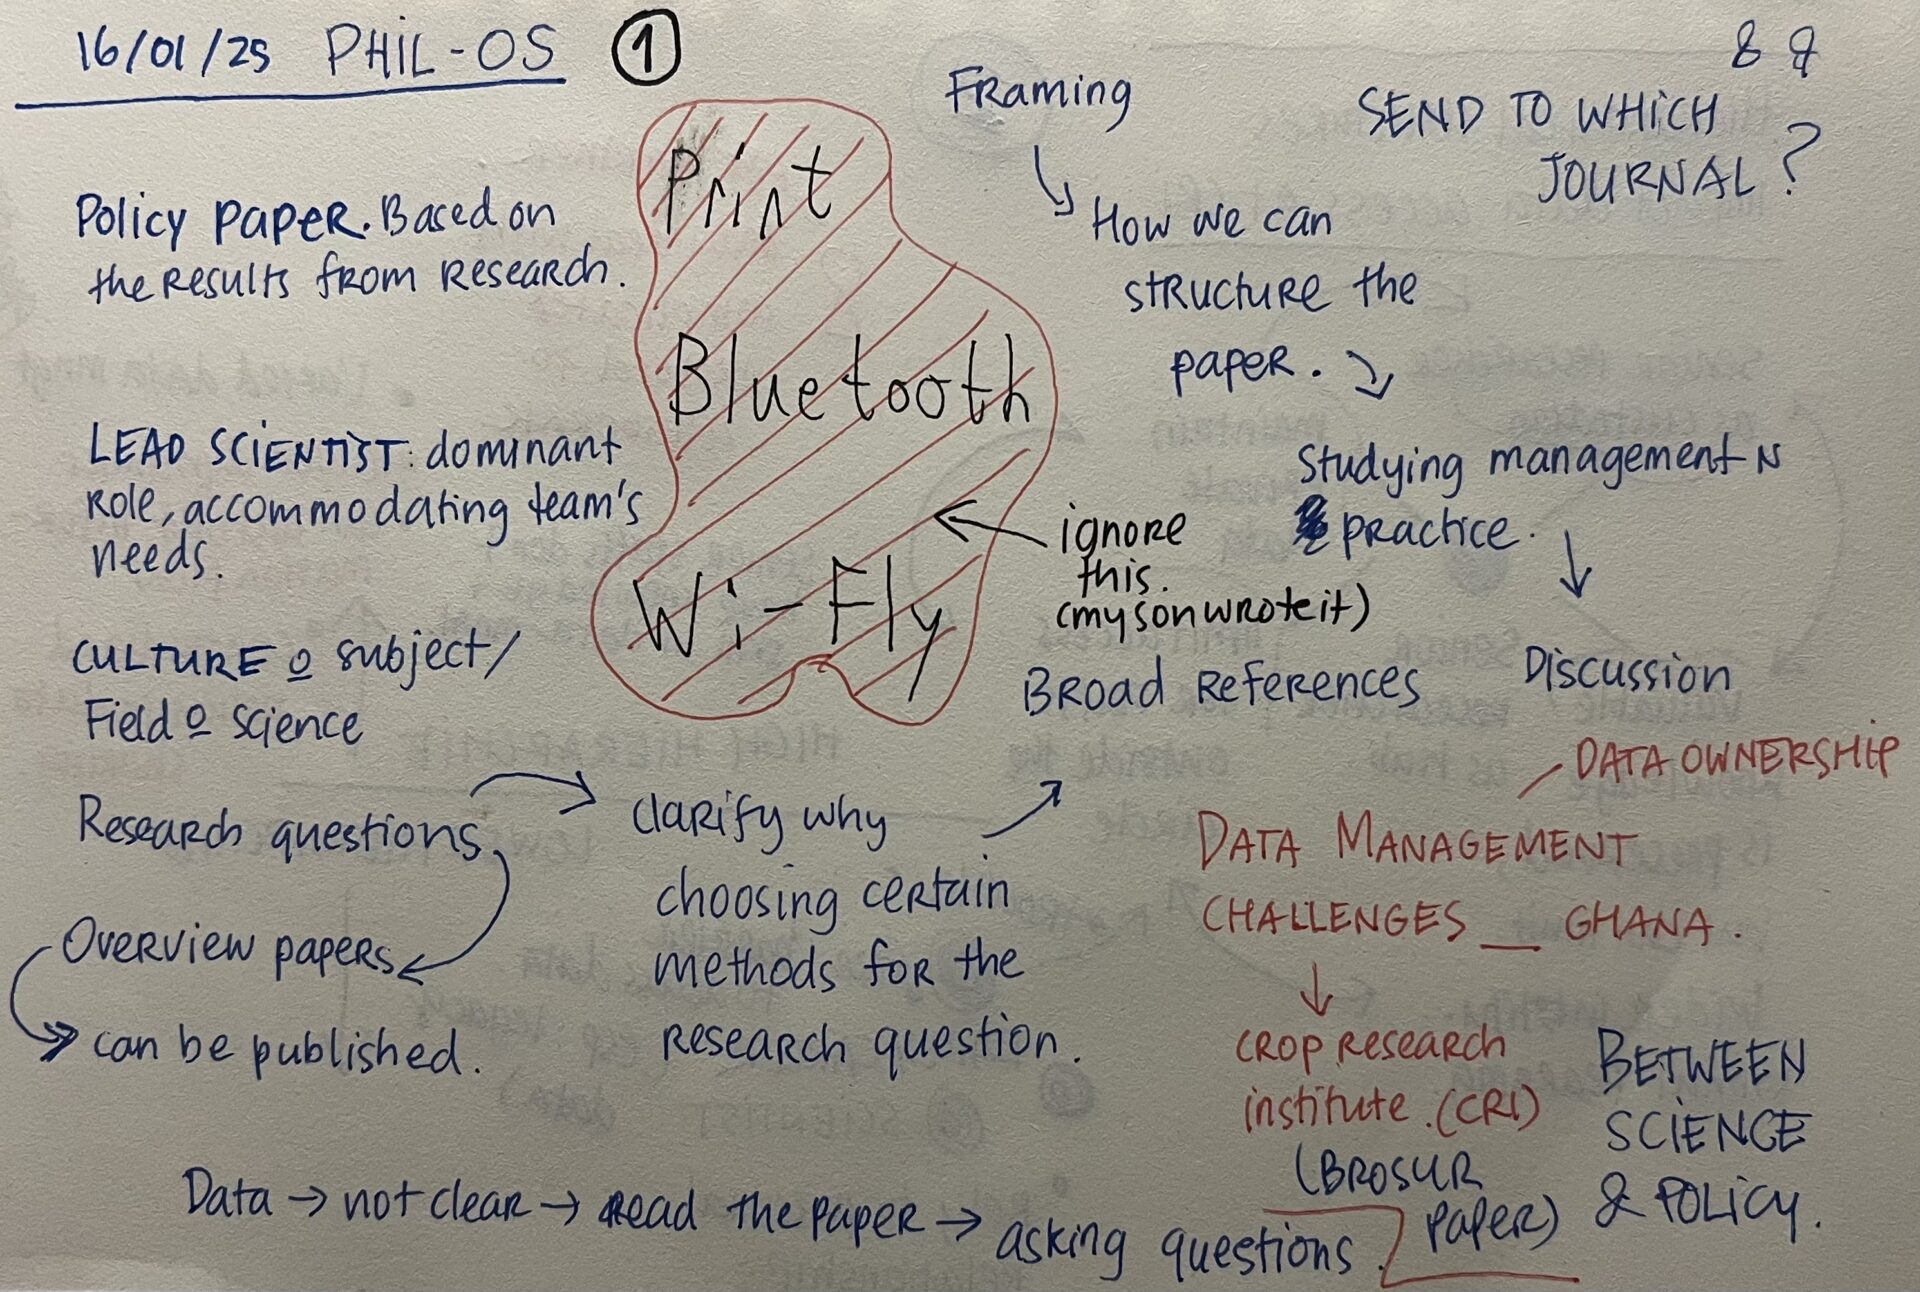 16/01/25 PHIL-OS 1
8 8
Policy paper. Based on
the results from research.
LEAD SCIENTIST: dominant
role, accommodating team's
needs.
CULTURE o subject/
Field o science
Research questions
Overview papers
can be published.
Print
Bluetooth
Wi-Fly
ignore
this.
(my son wrote it)
clarify why
choosing certain
methods for the
research question.
Broad references
Framing
How we can
structure the
paper.
Studying management N
practice.
Discussion
SEND TO WHICH
JOURNAL?
DATA OWNERSHIP
DATA MANAGEMENT
CHALLENGES _ GHANA.
crop research
institute.(CRI)
(BROSUR
paper)
BETWEEN
SCIENCE
& POLICY.
Data → not clear → read the paper → asking questions.